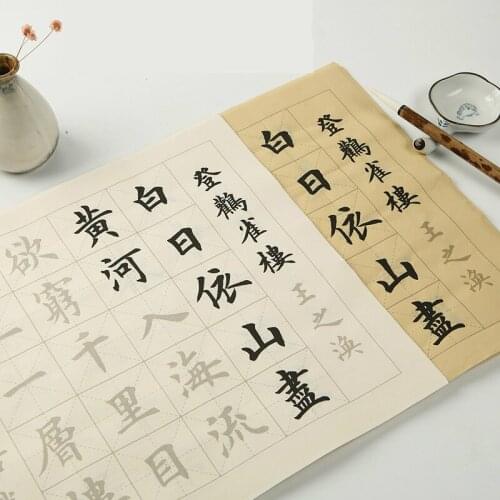 登鸛雀樓
王之渙
白日依山盡
登鸛雀樓
王之渙
白日依山盡
黃河入海流
欲窮千里目
一層樓